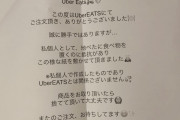 Uber Eats
この度はUberEATSにて
ご注文頂き、ありがとうございました
誠に勝手ではありますが…
私個人として、他べたに食べ物を
この様な紙を敷かせて頂きました
※私個人で作成したものであり
UberEATSとは関係ございません
商品をお取り頂いたら
捨てて頂いて大丈夫です
またのご注文、お待ちしてます